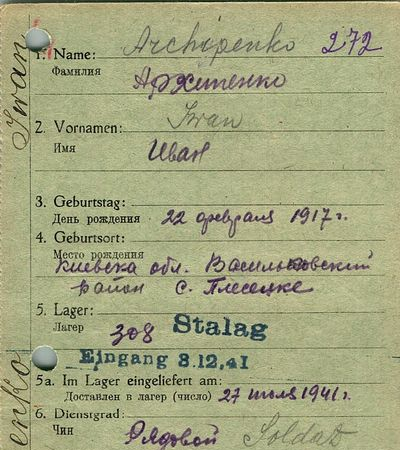 Iwan
enko
1. Name: Archipenko 272
Фамилия Архипенко
2. Vornamen: Iwan
Имя Иван
3. Geburtstag:
День рождения 22 февраля 1917 г.
4. Geburtsort:
Место рождения
Киевска обл. Васильковский
район с. Плесецке
5. Lager:
Лагерь 308 Stalag
Eingang 8.12.41
5a. Im Lager eingeliefert am:
Доставлен в лагерь (число) 27 июля 1941 г.
6. Dienstgrad:
Чин Рядовой Soldat